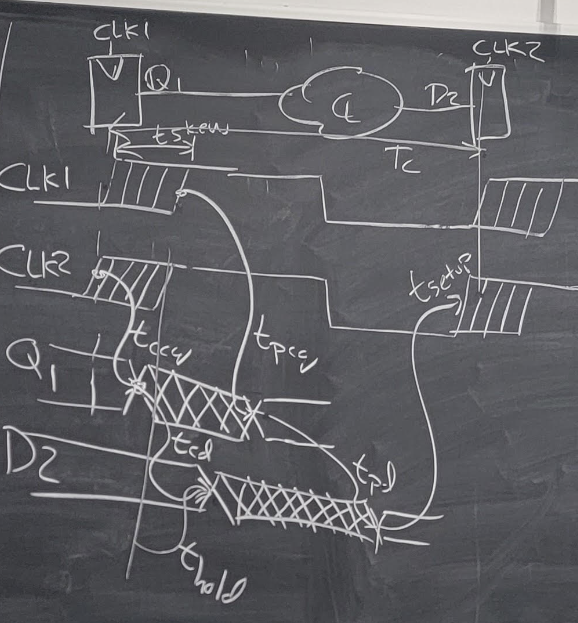 CLK1
CLK2
Q1
CL
D2
tskew
Tc
CLK1
CLK2
tsetup
tccq
tpcq
Q1
tcd
tpd
D2
thold